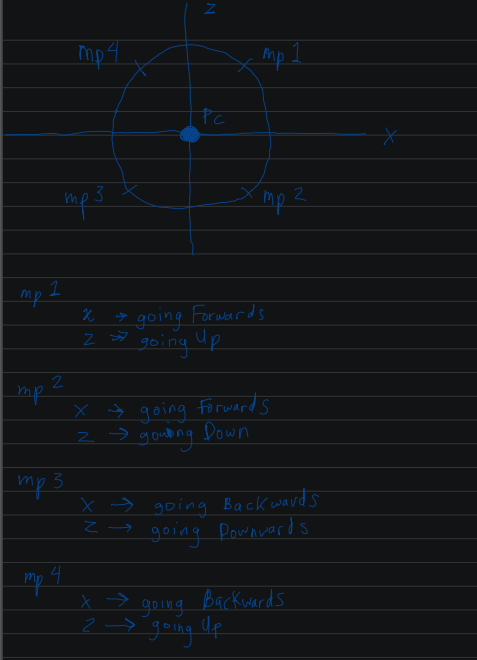 z
mp4 mp1
Pc
X
mp3 mp2
mp1
x → going Forwards
z → going Up
mp2
x → going Forwards
z → going Down
mp3
x → going Backwards
z → going Downwards
mp4
x → going Backwards
z → going Up